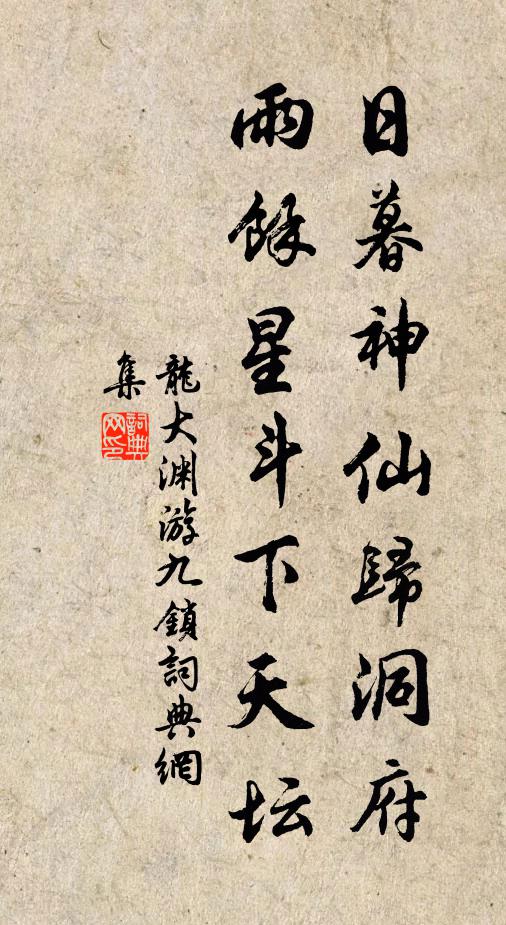 日暮神仙歸洞府
雨餘星斗下天坛
龍大渊游九鎖詞典網
集
詞典网印